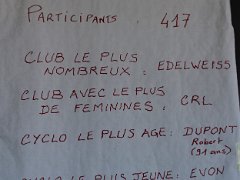 PARTICIPANTS : 417
CLUB LE PLUS
NOMBREUX : EDELWEISS
CLUB AVEC LE PLUS
DE FEMININES : CRL
CYCLO LE PLUS AGE : DUPONT
Robert
(91 ans)
CYCLO LE PLUS JEUNE : EVON